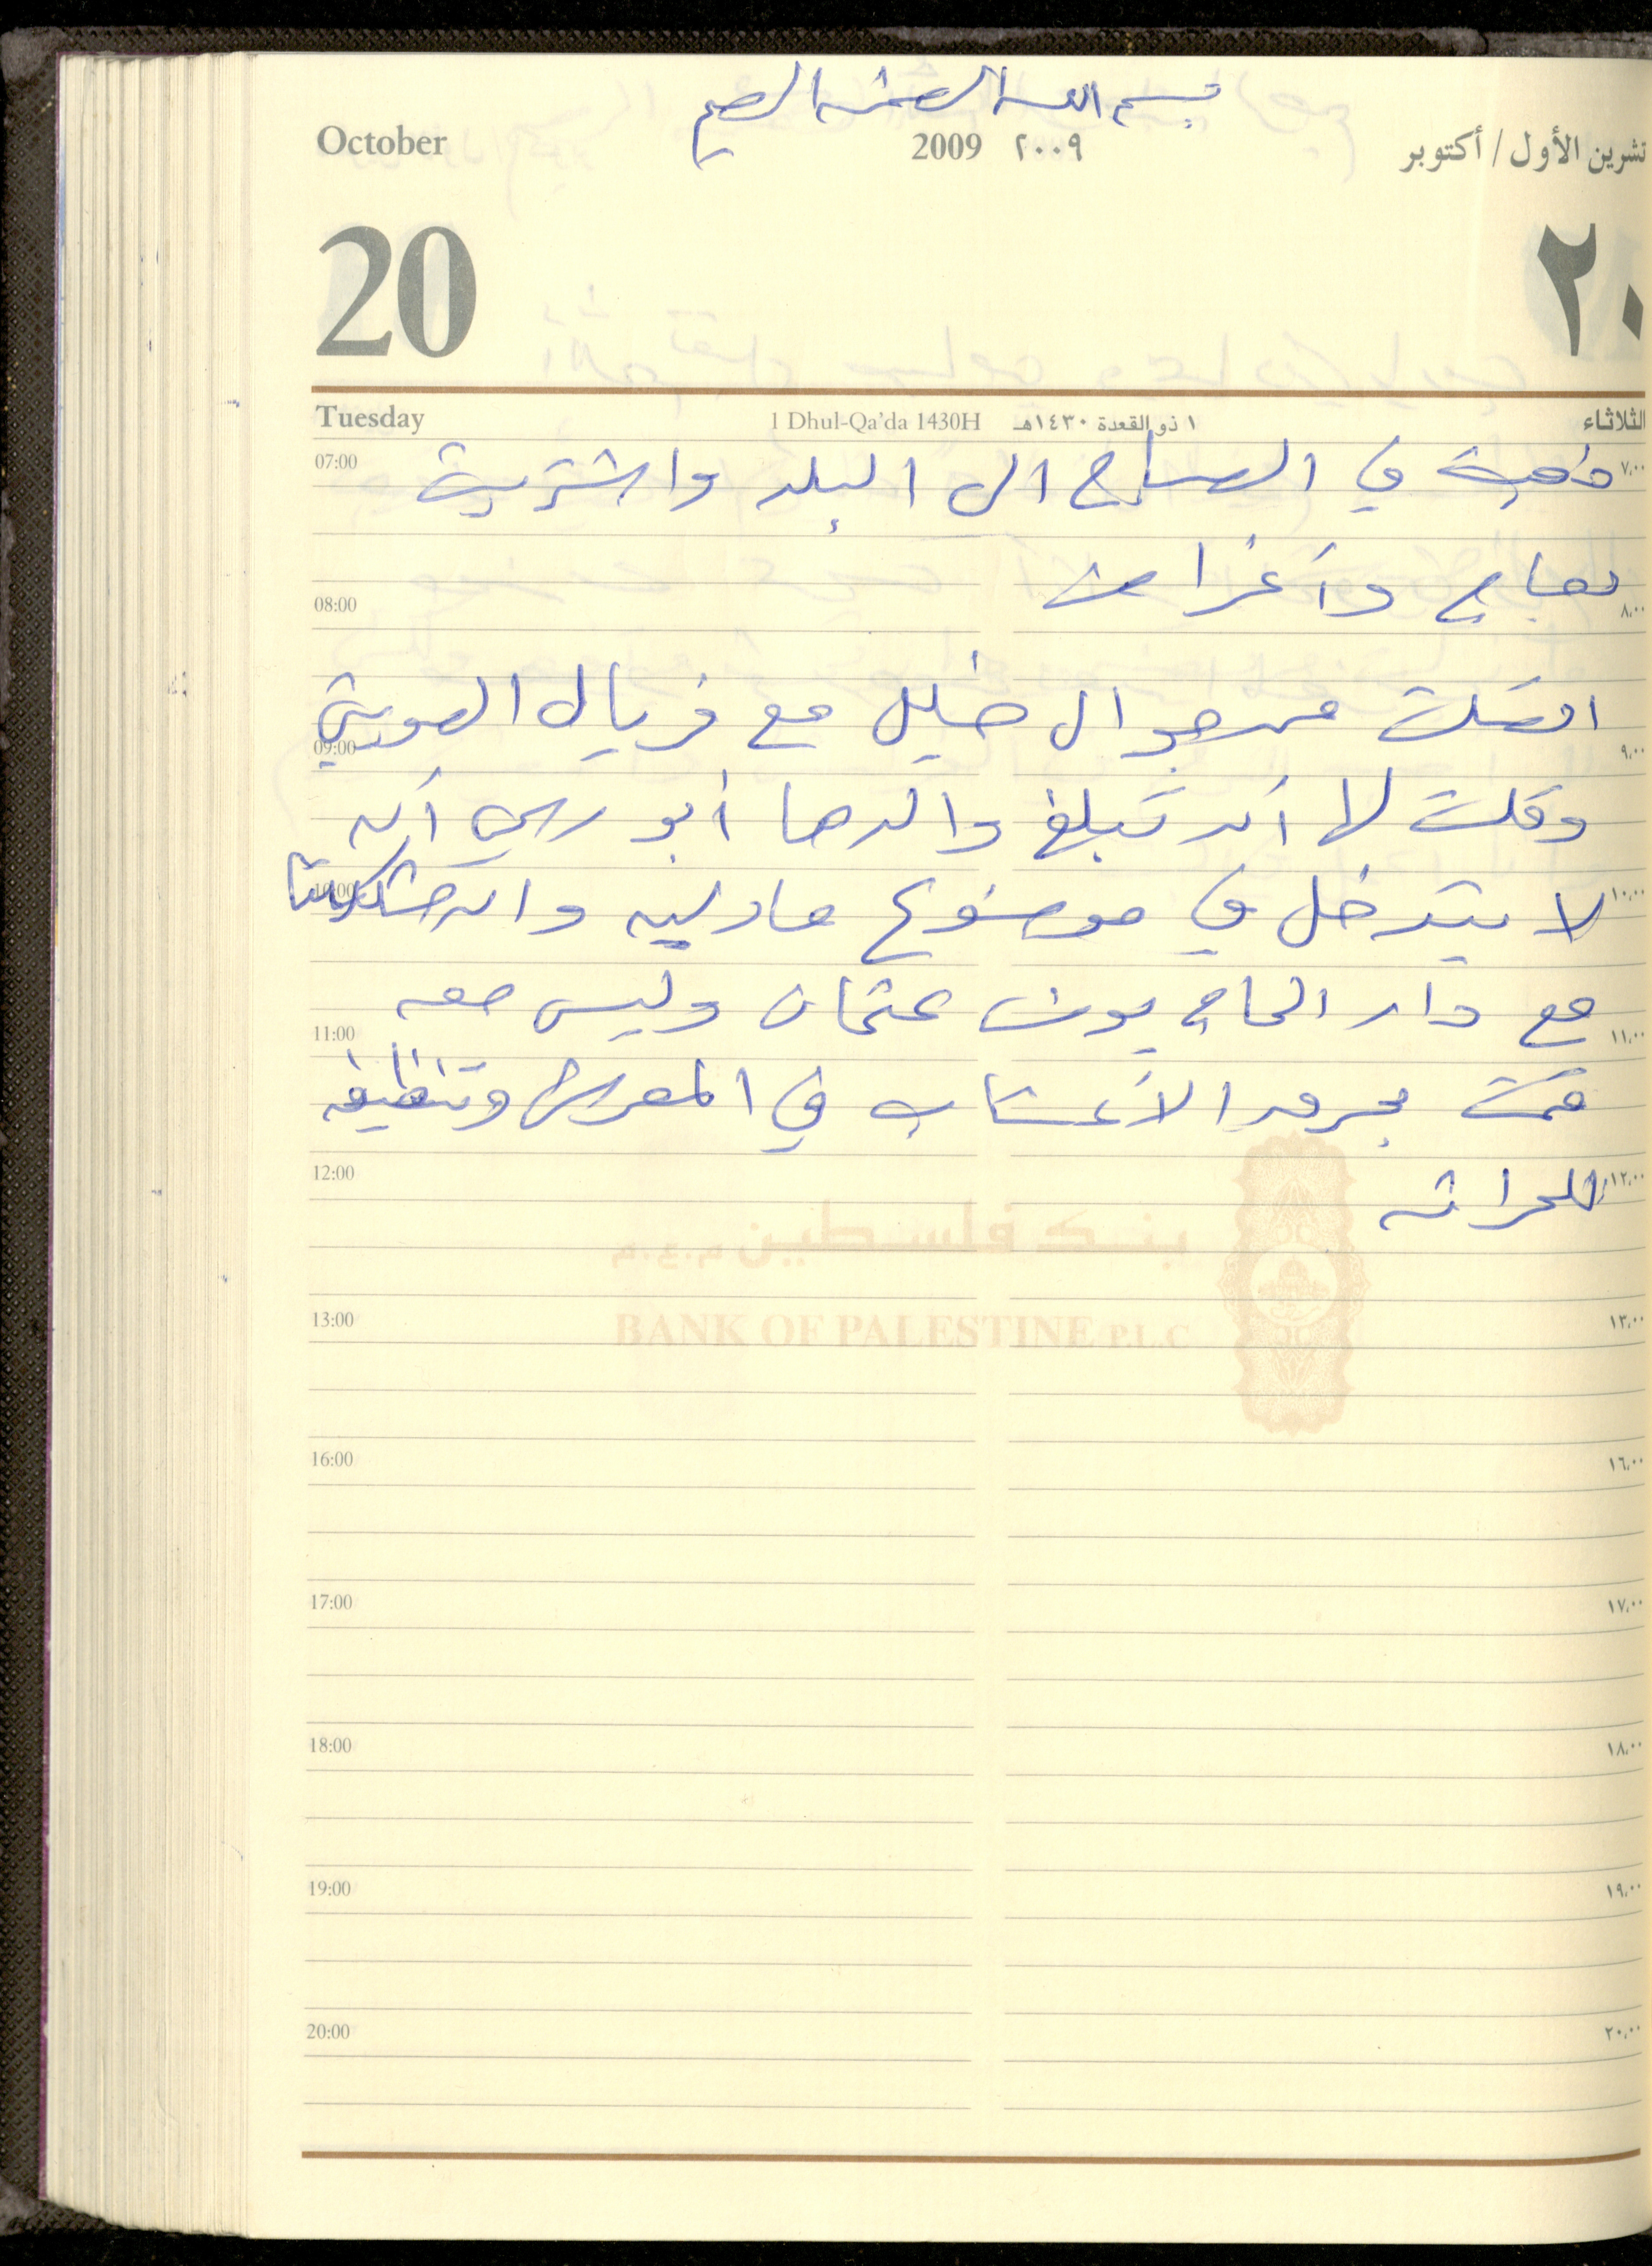 بسم الله الرحمن الرحيم
October 2009 ٢٠٠٩ تشرين الأول / أكتوبر
20 ٢٠
Tuesday 1 Dhul-Qa'da 1430H ١ ذو القعدة ١٤٣٠هـ الثلاثاء
07:00 ٧،٠٠
ذهبت في الصباح الى البلد واشتريت
دجاج وأغراض
08:00 ٨،٠٠
اتصلت من جوال خليل مع فريال
09:00 ٩،٠٠
وقلت لها أن تبلغ والدها أبو أن
لا يتدخل في موضوع وان مشكلتنا
10:00 ١٠،٠٠
مع دار الحاج عثمان وليس معه
11:00 ١١،٠٠
قمت الأعشاب في المعرش وتنظيفه
للحراثه
12:00 ١٢،٠٠
بنك فلسطين م.ع.م
BANK OF PALESTINE P.L.C
13:00 ١٣،٠٠
16:00 ١٦،٠٠
17:00 ١٧،٠٠
18:00 ١٨،٠٠
19:00 ١٩،٠٠
20:00 ٢٠،٠٠